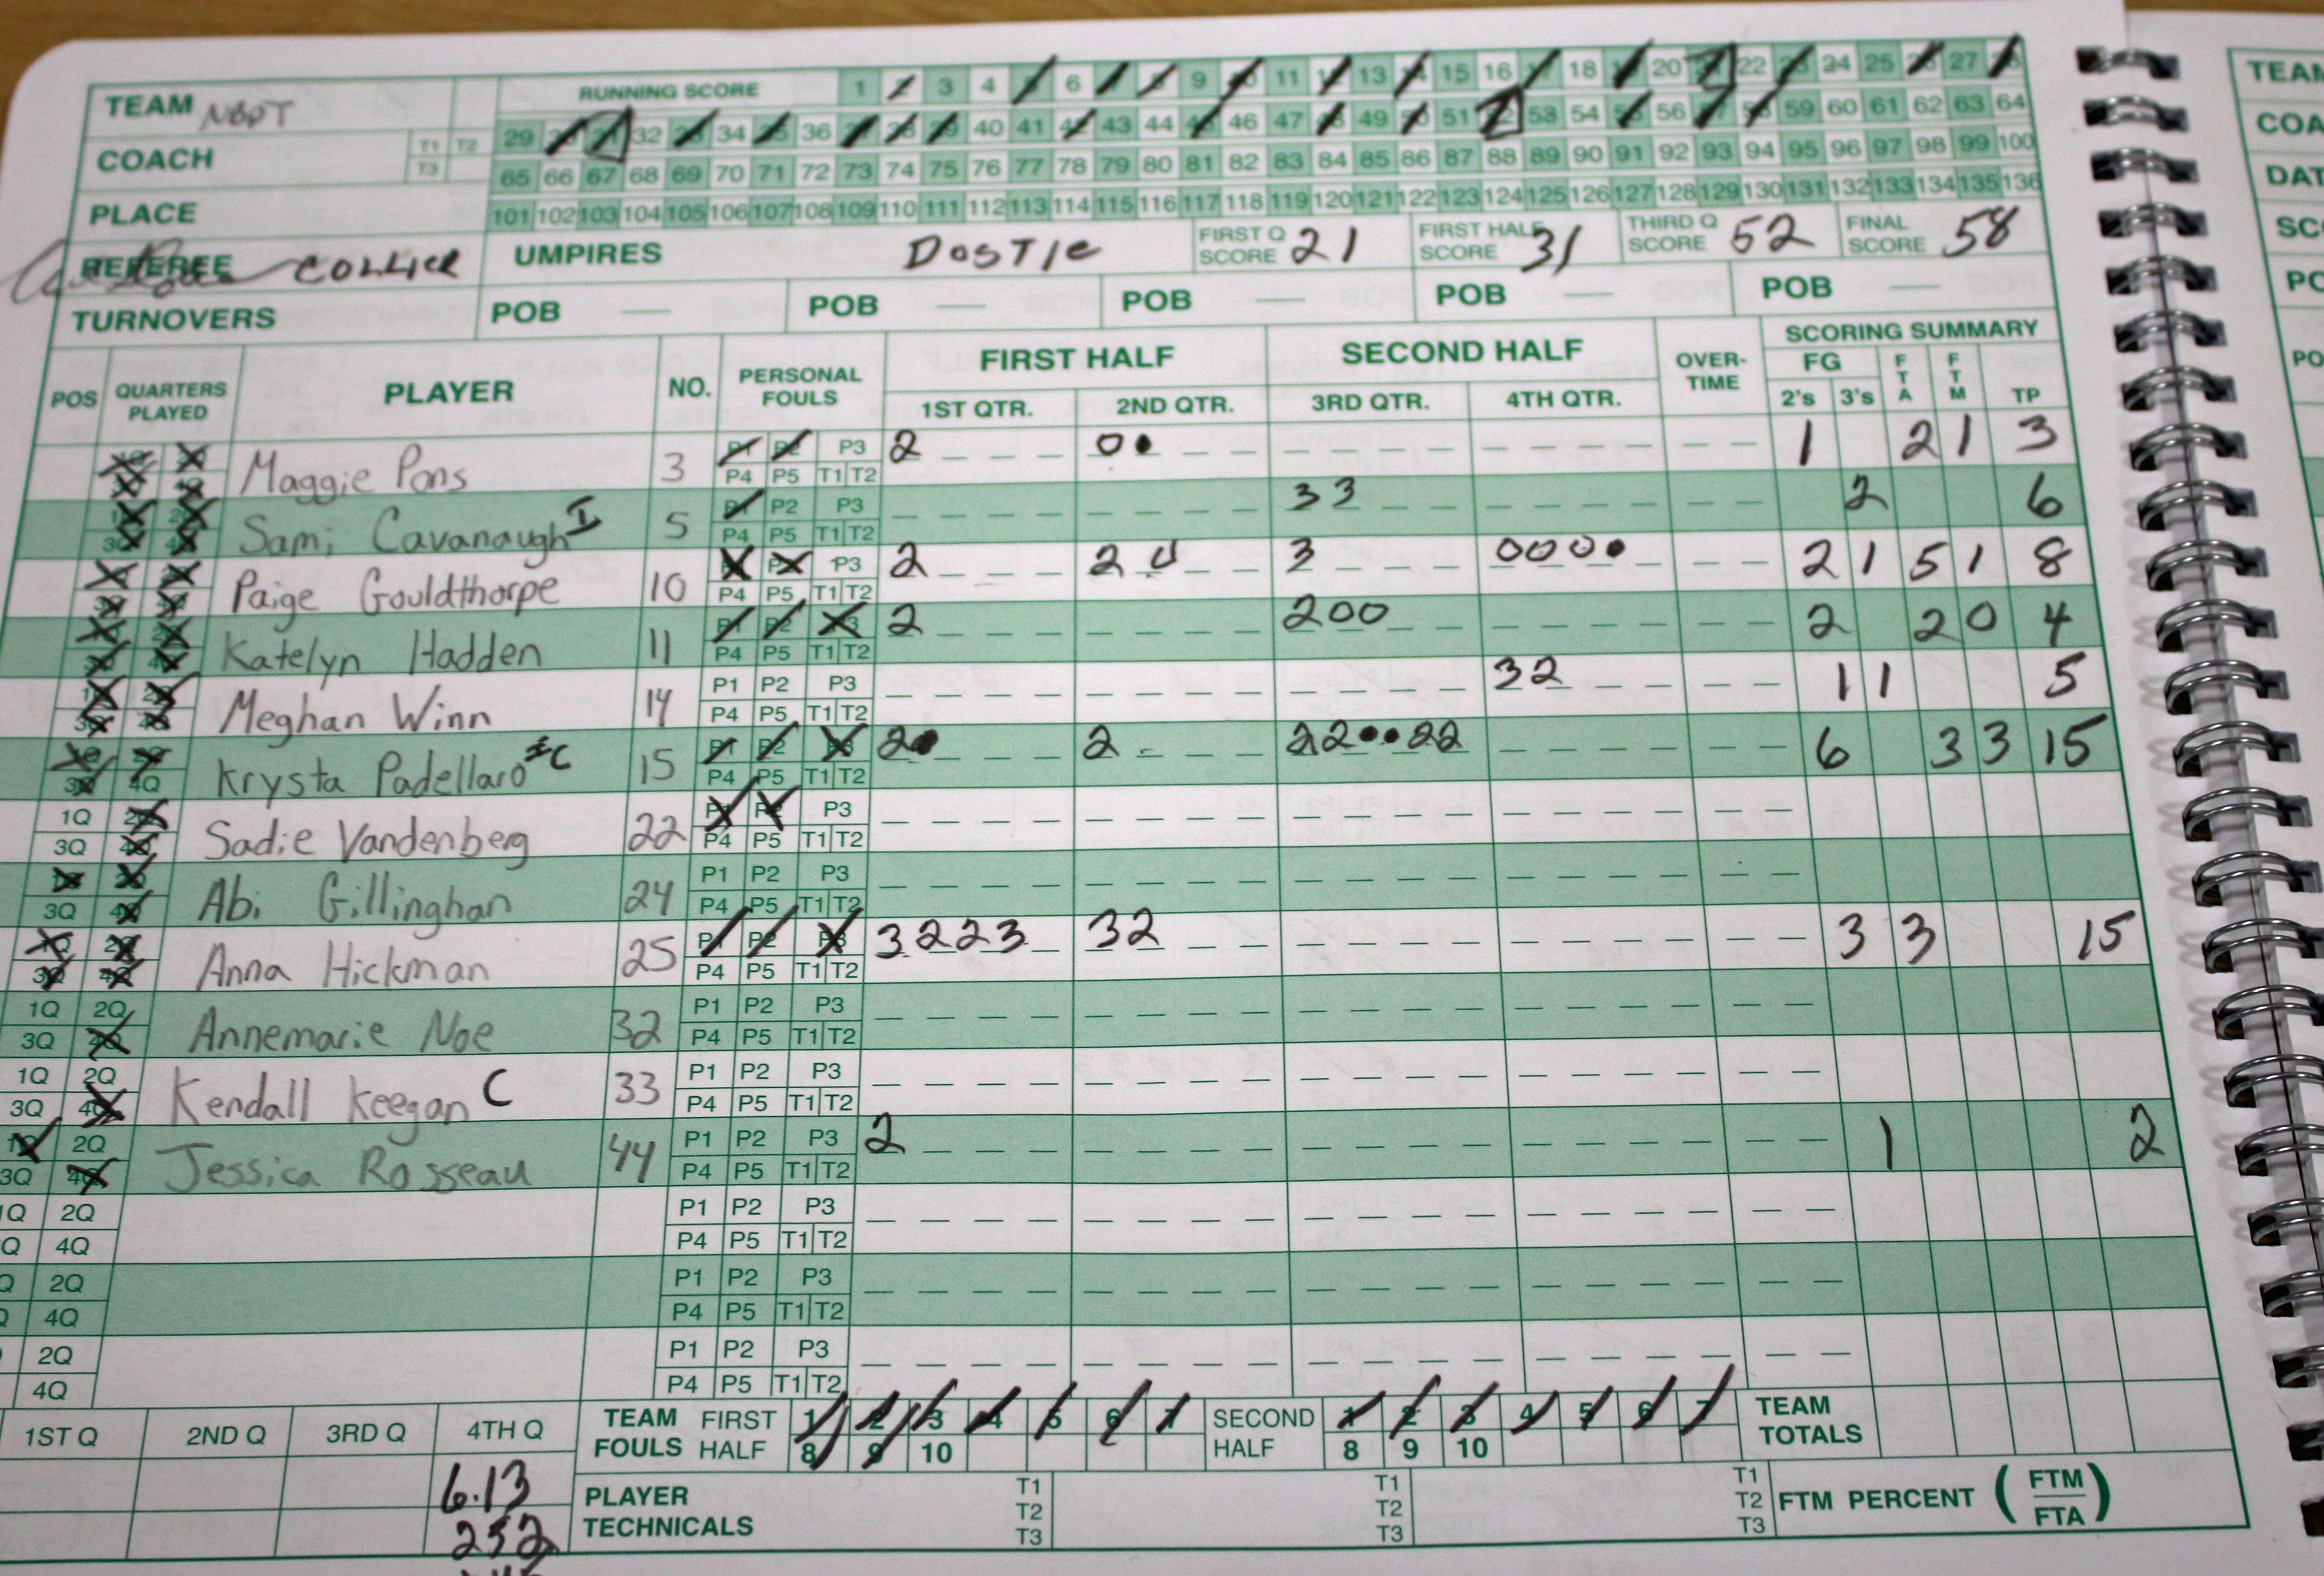 TEAM NBPT RUNNING SCORE 1 2 3 4 5 6 7 8 9 10 11 12 13 14 15 16 17 18 19 20 21 22 23 24 25 26 27 28
COACH T1 T2 T3 29 30 31 32 33 34 35 36 37 38 39 40 41 42 43 44 45 46 47 48 49 50 51 52 53 54 55 56 57 58 59 60 61 62 63 64
65 66 67 68 69 70 71 72 73 74 75 76 77 78 79 80 81 82 83 84 85 86 87 88 89 90 91 92 93 94 95 96 97 98 99 100
PLACE 101 102 103 104 105 106 107 108 109 110 111 112 113 114 115 116 117 118 119 120 121 122 123 124 125 126 127 128 129 130 131 132 133 134 135 136
REFEREE COLLIER UMPIRES DOSTIE FIRST Q SCORE 21 FIRST HALF SCORE 31 THIRD Q SCORE 52 FINAL SCORE 58
TURNOVERS POB — POB — POB — POB — POB —
POS QUARTERS PLAYED PLAYER NO. PERSONAL FOULS FIRST HALF SECOND HALF OVER-TIME SCORING SUMMARY
1ST QTR. 2ND QTR. 3RD QTR. 4TH QTR. FG 2's 3's FTA FTM TP
Maggie Pons 3 P1 P2 P3 2 0• 1 2 1 3
P4 P5 T1 T2
Sami Cavanaugh I 5 P1 P2 P3 3 3 2 6
3Q 4Q P4 P5 T1 T2
Paige Gouldthorpe 10 P3 2 2 0 3 0 0 0 • 2 1 5 1 8
P4 P5 T1 T2
Katelyn Hadden 11 P1 P2 P3 2 2 0 0 2 2 0 4
P4 P5 T1 T2
Meghan Winn 14 P1 P2 P3 3 2 1 1 5
P4 P5 T1 T2
Krysta Padellaro C 15 P1 P2 P3 2 • 2 2 2 • • 2 2 6 3 3 15
3Q 4Q P4 P5 T1 T2
1Q 2Q Sadie Vandenberg 22 P1 P2 P3
3Q 4Q P4 P5 T1 T2
Abi Gillinghan 24 P1 P2 P3
3Q 4Q P4 P5 T1 T2
1Q 2Q Anna Hickman 25 P1 P2 P3 3 2 2 3 3 2 3 3 15
3Q 4Q P4 P5 T1 T2
1Q 2Q Annemarie Noe 32 P1 P2 P3
3Q 4Q P4 P5 T1 T2
1Q 2Q Kendall Keegan C 33 P1 P2 P3
3Q 4Q P4 P5 T1 T2
1Q 2Q Jessica Rosseau 44 P1 P2 P3 2 1 2
3Q 4Q P4 P5 T1 T2
1Q 2Q P1 P2 P3
Q 4Q P4 P5 T1 T2
Q 2Q P1 P2 P3
4Q P4 P5 T1 T2
2Q P1 P2 P3
4Q P4 P5 T1 T2
1ST Q 2ND Q 3RD Q 4TH Q TEAM FOULS FIRST HALF 1 2 3 4 5 6 7 8 9 10 SECOND HALF 1 2 3 4 5 6 7 8 9 10 TEAM TOTALS
6.13 PLAYER TECHNICALS T1 T2 T3 T1 T2 T3 T1 T2 T3 FTM PERCENT (FTM/FTA)
252
TEAM
COA
DAT
SC
PO